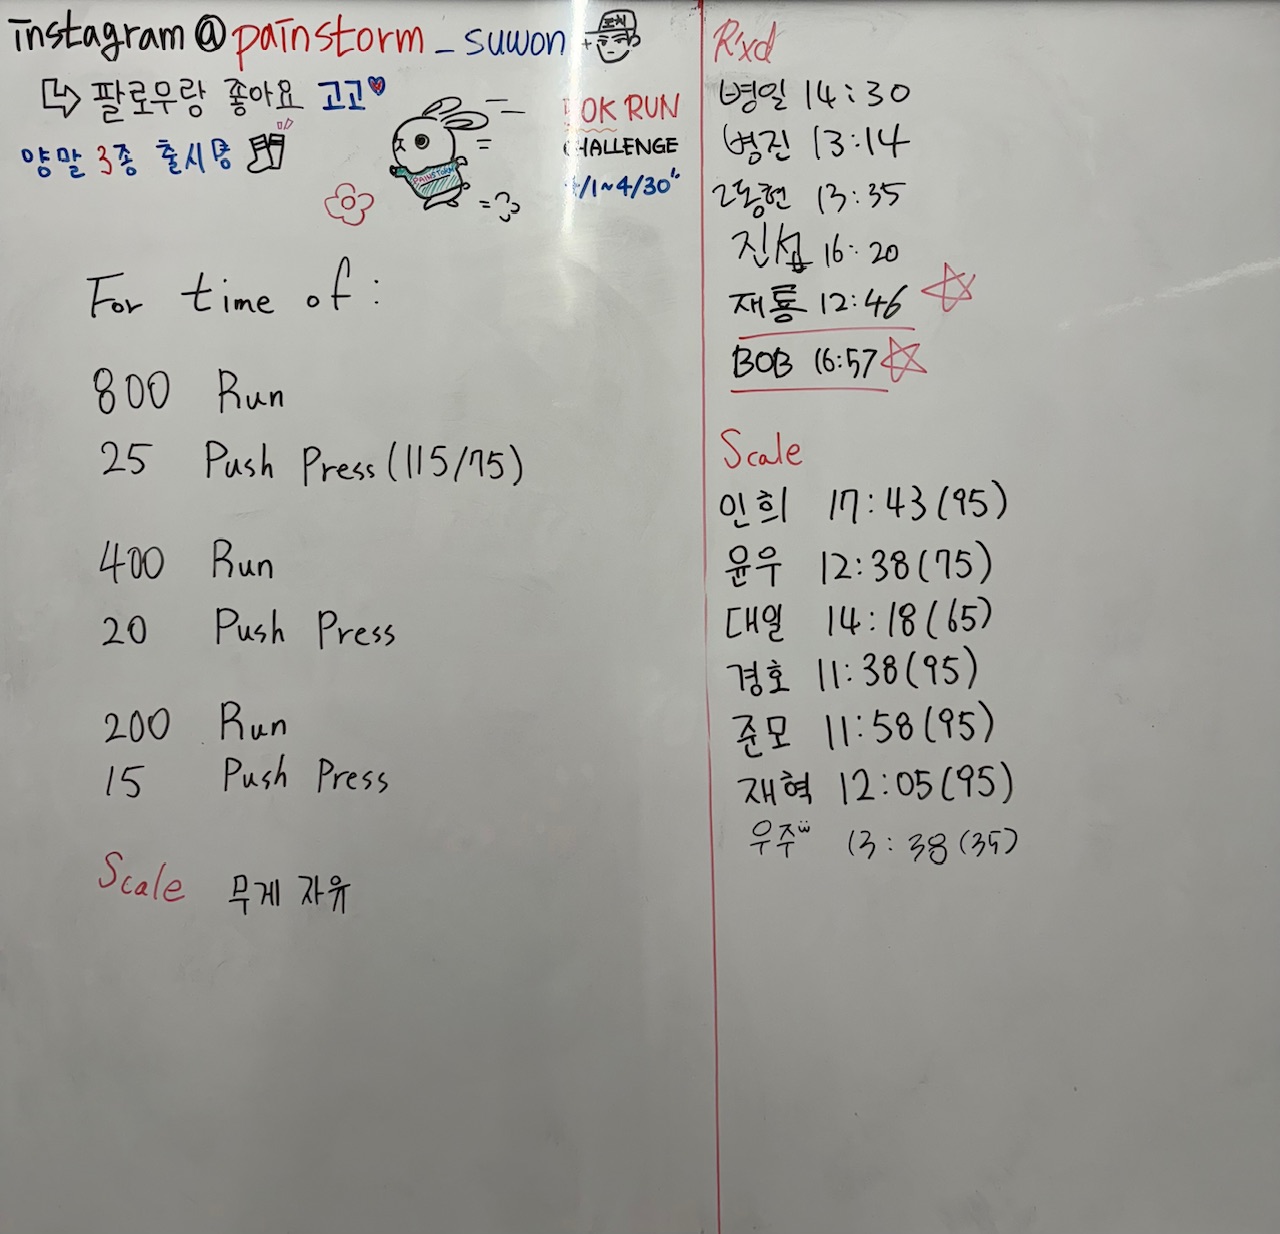 instagram@painstorm_suwon
팔로우랑 좋아요 고고
양말 3종 출시중
PAINSTORM
OK RUN
CHALLENGE
/1~4/30
For time of:
800 Run
25 Push Press (115/75)
400 Run
20 Push Press
200 Run
15 Push Press
Scale 무게 자유
Rxd
병일 14:30
병진 13:14
2동현 13:35
진섭 16:20
재룡 12:46
BOB 16:57
Scale
인희 17:43(95)
윤우 12:38(75)
대일 14:18(65)
경호 11:38(95)
준모 11:58(95)
재혁 12:05(95)
우주 13:38(35)